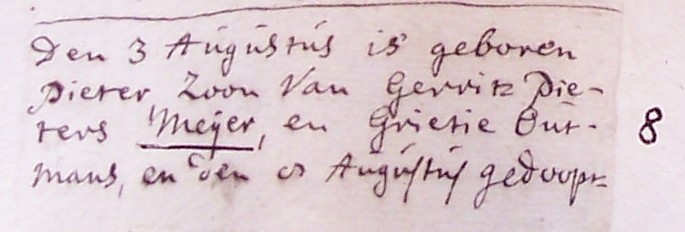 Den 3 Augustus is geboren
Pieter, Zoon Van Gerrit Pie-
ters Meijer, en Grietie Out- 8
mans, en den Augustus gedoopt